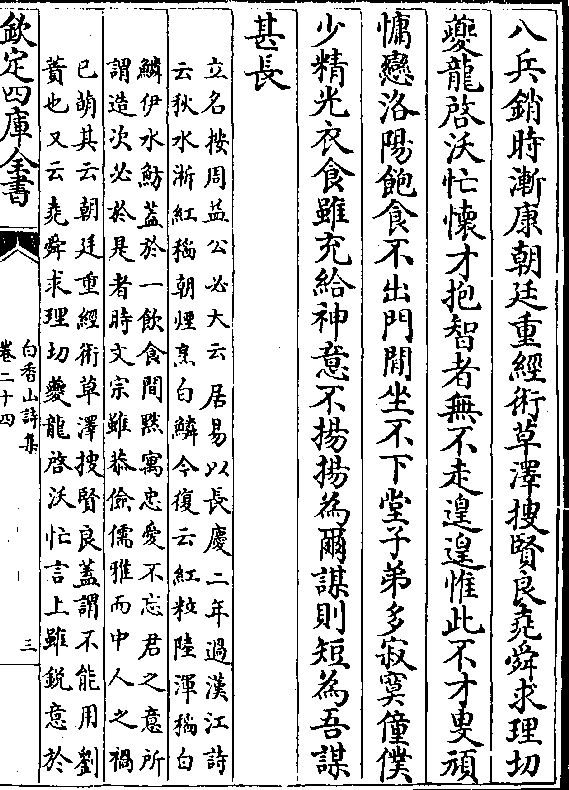 八兵銷時漸康朝廷重經術草澤搜賢良堯舜求理切
夔龍啓沃忙懷才抱智者無不走遑遑惟此不才叟頑
慵戀洛陽飽食不出門閒坐不下堂子弟多寂寞僮僕
少精光衣食雖充給神意不揚揚為爾謀則短為吾謀
甚長
立名按周益公必大云居易以長慶二年過漢江詩
云秋水淅紅稻朝煙烹白鱗今復云紅粒陸渾稻白
鱗伊水魴葢於一飲食間黙寓忠愛不忘君之意所
謂造次必於是者時文宗雖恭儉儒雅而中人之禍
已萌其云朝廷重經術草澤搜賢良蓋謂不能用劉
蕡也又云堯舜求理切夔龍啓沃忙言上雖銳意於
欽定四庫全書
白香山詩集
卷二十四
三